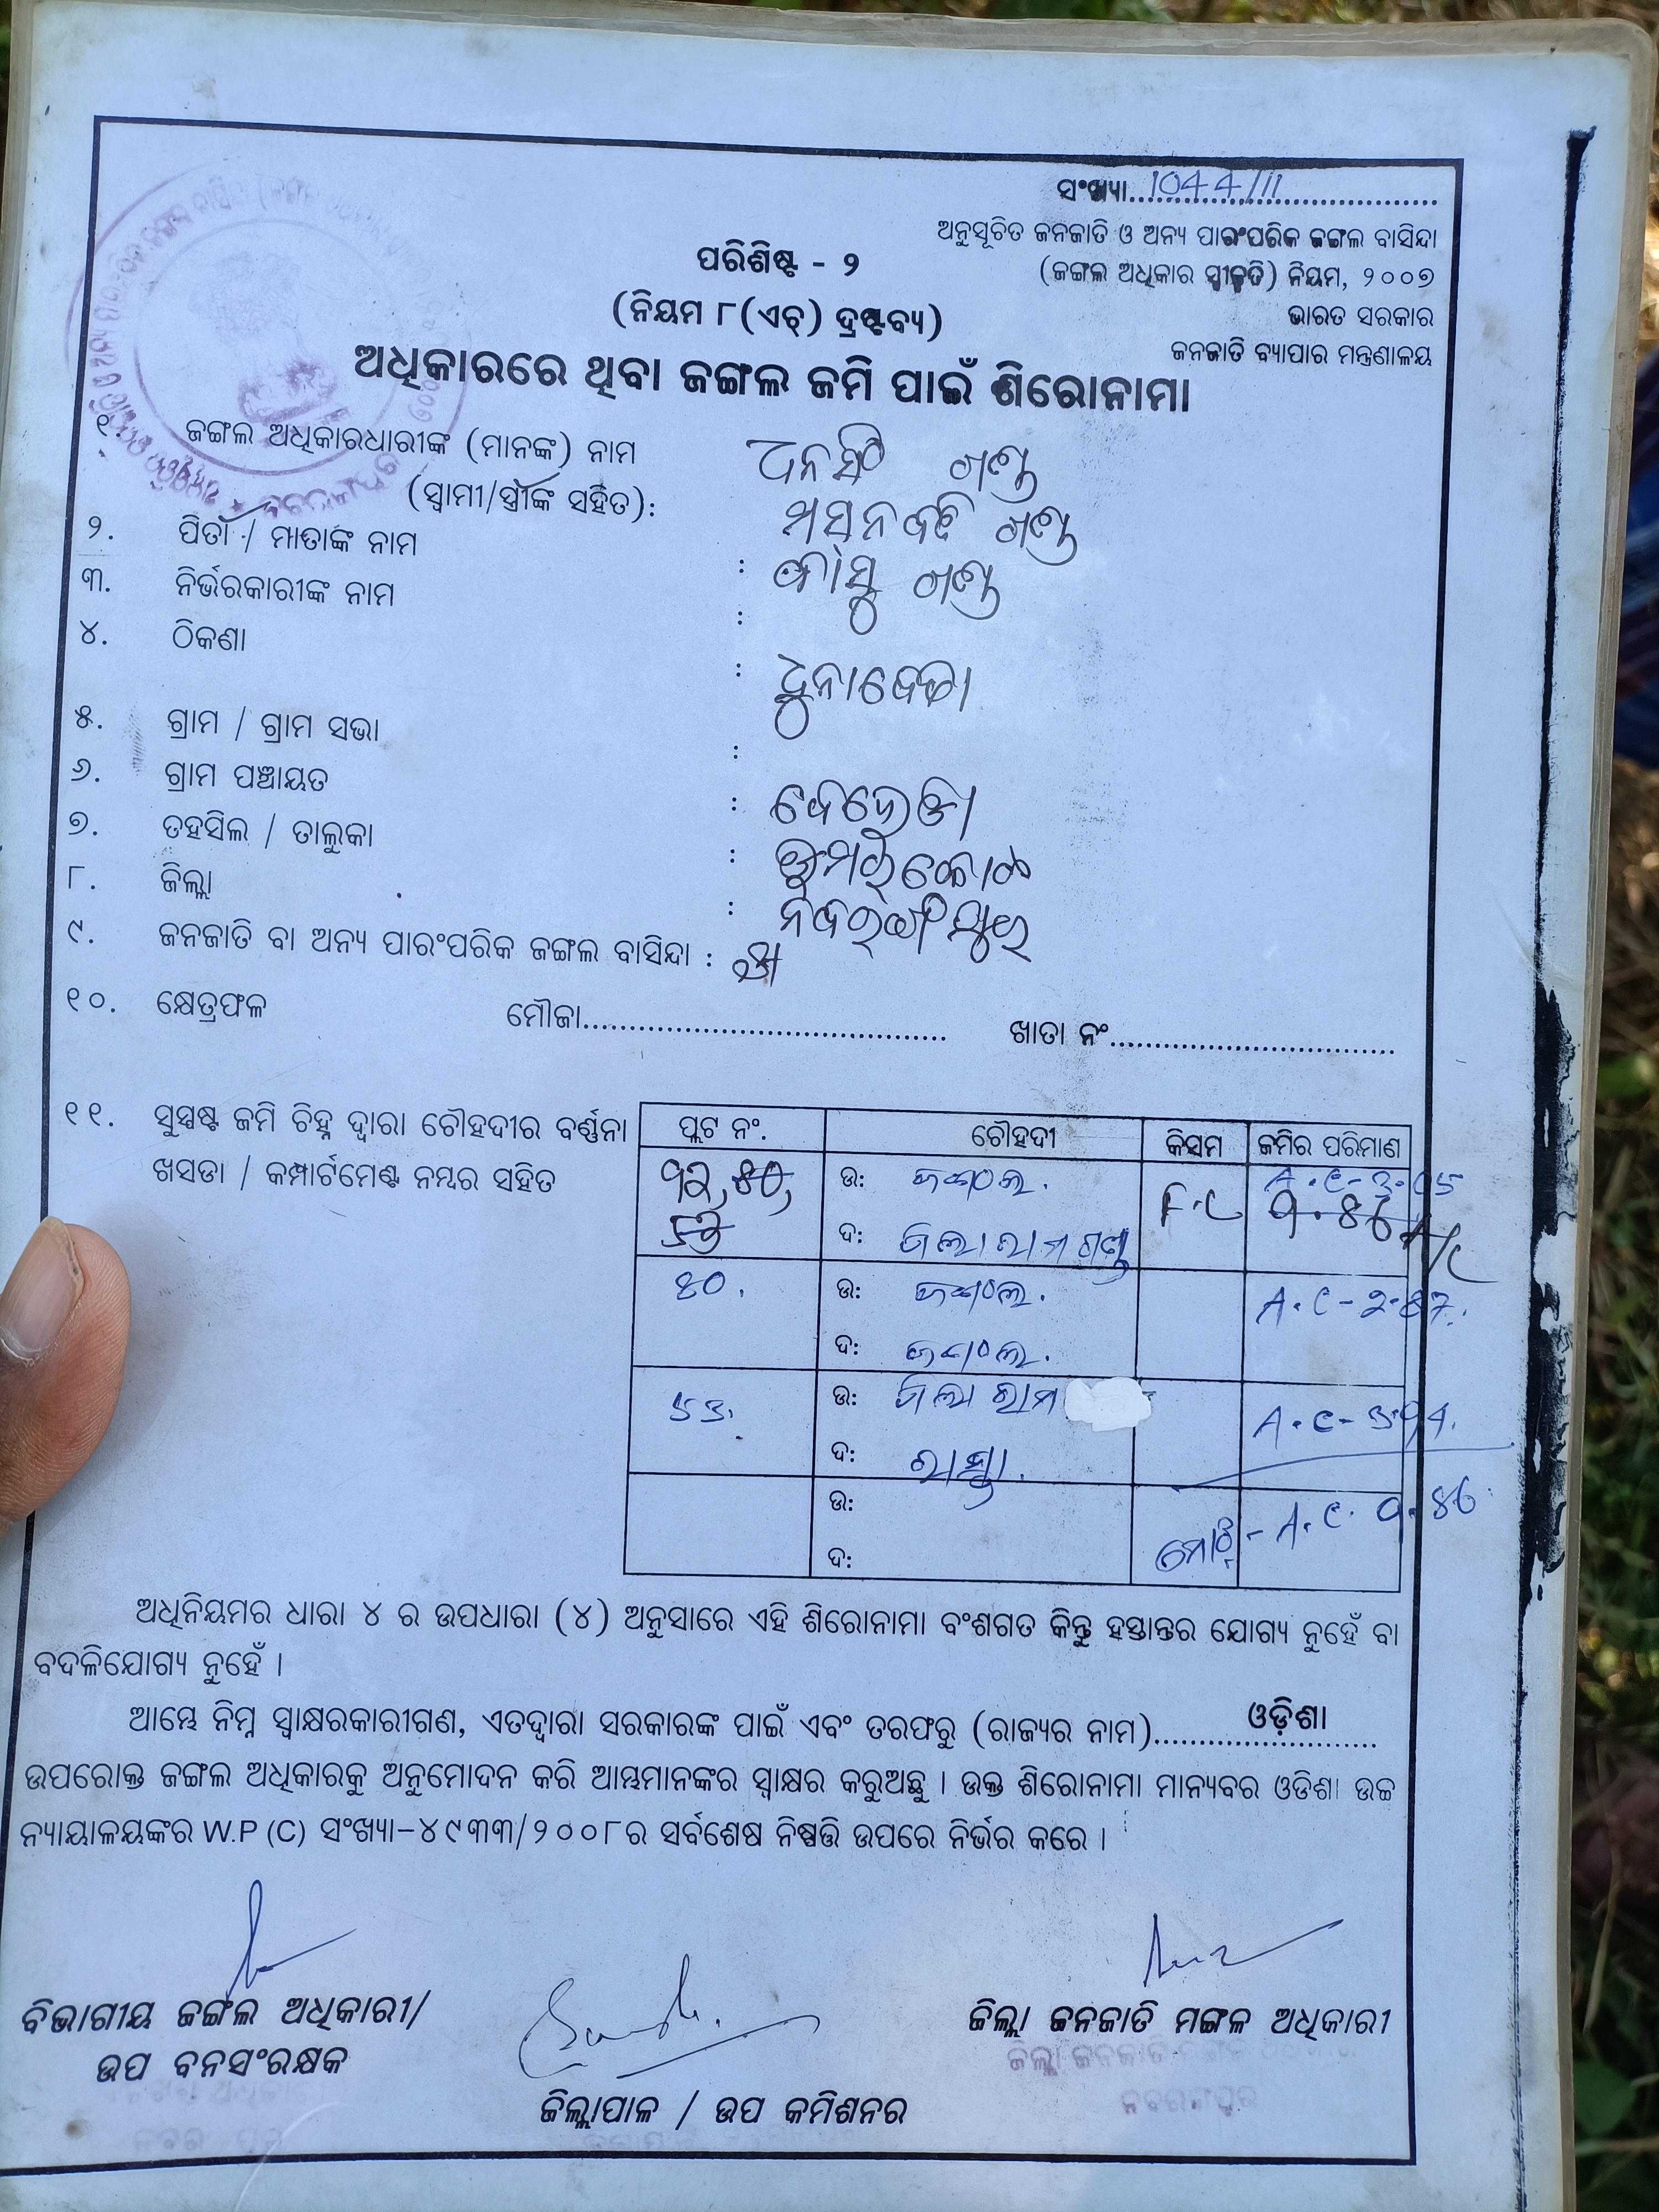 ସଂଖ୍ୟା.. 1044/11
ଅନୁସୂଚିତ ଜନଜାତି ଓ ଅନ୍ୟ ପାରଂପରିକ ଜଙ୍ଗଲ ବାସିନ୍ଦା
(ଜଙ୍ଗଲ ଅଧିକାର ସ୍ୱୀକୃତି) ନିୟମ, ୨୦୦୭
ଭାରତ ସରକାର
ଜନଜାତି ବ୍ୟାପାର ମନ୍ତ୍ରଣାଳୟ
ପରିଶିଷ୍ଟ - ୨
(ନିୟମ ୮(ଏଚ୍) ଦ୍ରଷ୍ଟବ୍ୟ)
ଅଧିକାରରେ ଥିବା ଜଙ୍ଗଲ ଜମି ପାଇଁ ଶିରୋନାମା
୧. ଜଙ୍ଗଲ ଅଧିକାରଧାରୀଙ୍କ (ମାନଙ୍କ) ନାମ ଧନସିଂ ଗଣ୍ଡ
(ସ୍ୱାମୀ/ସ୍ତ୍ରୀଙ୍କ ସହିତ): ଗଣ୍ଡ
୨. ପିତା / ମାତାଙ୍କ ନାମ : ଗଣ୍ଡ
୩. ନିର୍ଭରକାରୀଙ୍କ ନାମ :
୪. ଠିକଣା : ଧୁନାବେଡା
୫. ଗ୍ରାମ / ଗ୍ରାମ ସଭା :
୬. ଗ୍ରାମ ପଞ୍ଚାୟତ :
୭. ତହସିଲ / ତାଲୁକା : ଉମରକୋଟ
୮. ଜିଲ୍ଲା : ନବରଙ୍ଗପୁର
୯. ଜନଜାତି ବା ଅନ୍ୟ ପାରଂପରିକ ଜଙ୍ଗଲ ବାସିନ୍ଦା :
୧୦. କ୍ଷେତ୍ରଫଳ ମୌଜା........ ଖାତା ନଂ........
୧୧. ସୁସ୍ପଷ୍ଟ ଜମି ଚିହ୍ନ ଦ୍ୱାରା ଚୌହଦୀର ବର୍ଣ୍ଣନା
ଖସଡା / କମ୍ପାର୍ଟମେଣ୍ଟ ନମ୍ବର ସହିତ
ପ୍ଲଟ ନଂ. ଚୌହଦୀ କିସମ ଜମିର ପରିମାଣ
ଉ: ଜଙ୍ଗଲ. A.C-3.05
୫୩ ଦ: ଗଣ୍ଡ F.C ୨.୫୬
୫୦. ଉ: ଜଙ୍ଗଲ. A.C-2.87.
ଦ: ଜଙ୍ଗଲ.
୫୩. ଉ: ରାମ
ଦ: ରାସ୍ତା.
ଉ: ମୋଟ - A.C.
ଦ:
ଅଧିନିୟମର ଧାରା ୪ ର ଉପଧାରା (୪) ଅନୁସାରେ ଏହି ଶିରୋନାମା ବଂଶଗତ କିନ୍ତୁ ହସ୍ତାନ୍ତର ଯୋଗ୍ୟ ନୁହେଁ ବା
ବଦଳିଯୋଗ୍ୟ ନୁହେଁ ।
ଆମ୍ଭେ ନିମ୍ନ ସ୍ୱାକ୍ଷରକାରୀଗଣ, ଏତଦ୍ୱାରା ସରକାରଙ୍କ ପାଇଁ ଏବଂ ତରଫରୁ (ରାଜ୍ୟର ନାମ)........ଓଡ଼ିଶା........
ଉପରୋକ୍ତ ଜଙ୍ଗଲ ଅଧିକାରକୁ ଅନୁମୋଦନ କରି ଆମ୍ଭମାନଙ୍କର ସ୍ୱାକ୍ଷର କରୁଅଛୁ । ଉକ୍ତ ଶିରୋନାମା ମାନ୍ୟବର ଓଡିଶା ଉଚ୍ଚ
ନ୍ୟାୟାଳୟଙ୍କର W.P (C) ସଂଖ୍ୟା-୪୯୩୩/୨୦୦୮ର ସର୍ବଶେଷ ନିଷ୍ପତ୍ତି ଉପରେ ନିର୍ଭର କରେ ।
ବିଭାଗୀୟ ଜଙ୍ଗଲ ଅଧିକାରୀ/
ଉପ ବନସଂରକ୍ଷକ
ଜିଲ୍ଲାପାଳ / ଉପ କମିଶନର
ଜିଲ୍ଲା ଜନଜାତି ମଙ୍ଗଳ ଅଧିକାରୀ
ନବରଙ୍ଗପୁର